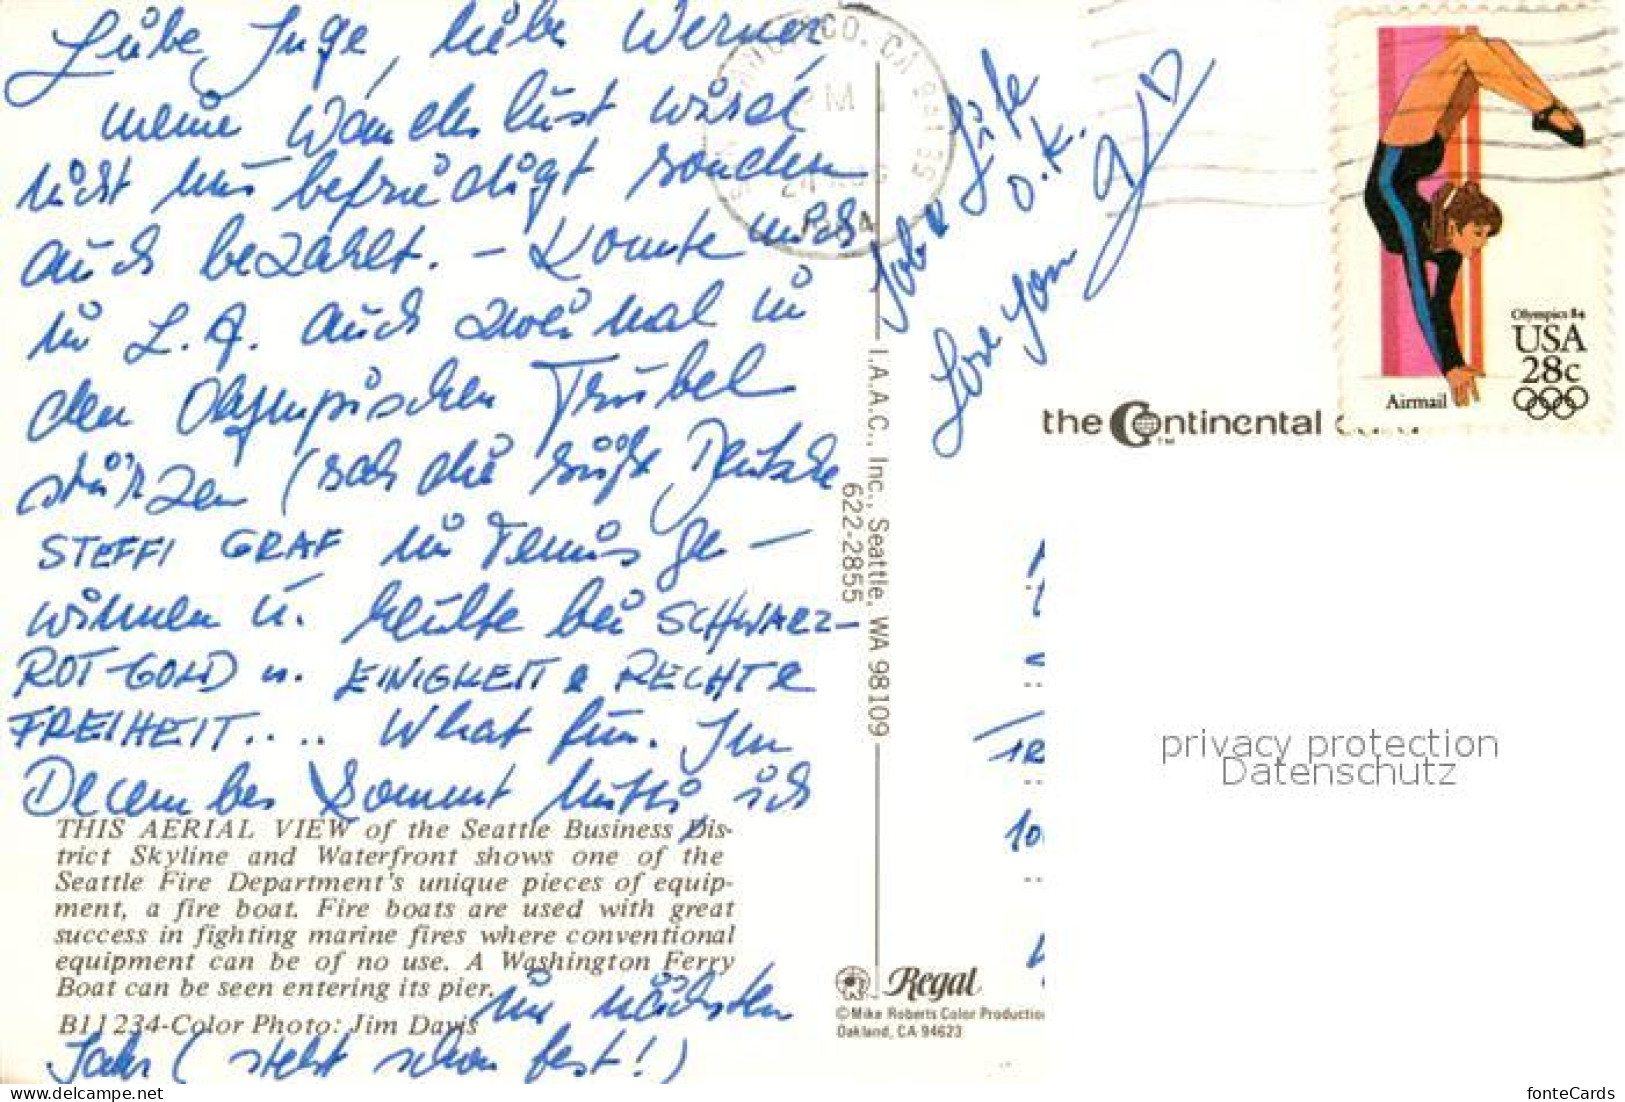 Liebe Inge, lieber Werner
meine Wanderlust wird
nicht nur befriedigt sondern
auch bezahlt. – Konnte mich
in L.A. auch zweimal in
den Olympischen Trubel
stürzen (sah die süße Deutsche
STEFFI GRAF im Tennis ge-
winnen u. heulte bei SCHWARZ-
ROT-GOLD u. EINIGKEIT & RECHT &
FREIHEIT.... What fun. Im
December kommt Mutti, ich
im nächsten
Jahr (steht schon fest!)
THIS AERIAL VIEW of the Seattle Business Dis-
trict Skyline and Waterfront shows one of the
Seattle Fire Department's unique pieces of equip-
ment, a fire boat. Fire boats are used with great
success in fighting marine fires where conventional
equipment can be of no use. A Washington Ferry
Boat can be seen entering its pier.
B11234-Color Photo: Jim Davis
Job & Life
O.K.
Love you
I.A.A.C., Inc., Seattle, WA 98109
622-2855
CO, CA
PM
24
the Continental
Olympics 84
USA
28c
Airmail
Regal
©Mike Roberts Color Productio
Oakland, CA 94623
privacy protection
Datenschutz
fonteCards